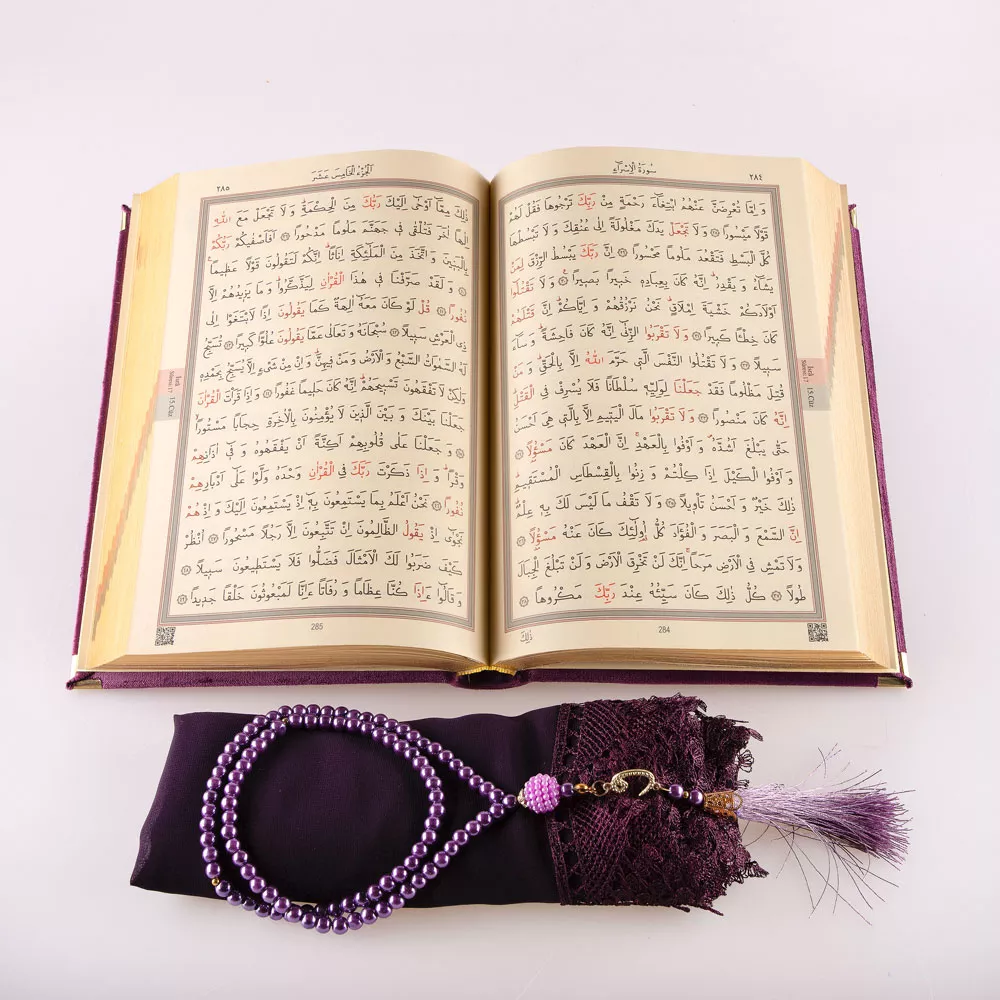 سُورَةُ الْاِسْرَٓاءِ ٢٨٤
وَ اِمَّا تُعْرِضَنَّ عَنْهُمُ ابْتِغَٓاءَ رَحْمَةٍ مِنْ رَبِّكَ تَرْجُوهَا فَقُلْ لَهُمْ
قَوْلًا مَيْسُورًا ﴿٢٨﴾ وَ لَا تَجْعَلْ يَدَكَ مَغْلُولَةً اِلٰى عُنُقِكَ وَ لَا تَبْسُطْهَا
كُلَّ الْبَسْطِ فَتَقْعُدَ مَلُومًا مَحْسُورًا ﴿٢٩﴾ اِنَّ رَبَّكَ يَبْسُطُ الرِّزْقَ لِمَنْ
يَشَٓاءُ وَ يَقْدِرُ اِنَّهُ كَانَ بِعِبَادِهٖ خَبٖيرًا بَصٖيرًا ﴿٣٠﴾ وَ لَا تَقْتُلُٓوا
اَوْلَادَكُمْ خَشْيَةَ اِمْلَاقٍ نَحْنُ نَرْزُقُهُمْ وَ اِيَّاكُمْ اِنَّ قَتْلَهُمْ
كَانَ خِطْـًٔا كَبٖيرًا ﴿٣١﴾ وَ لَا تَقْرَبُوا الزِّنٰٓى اِنَّهُ كَانَ فَاحِشَةً وَ سَٓاءَ
سَبٖيلًا ﴿٣٢﴾ وَ لَا تَقْتُلُوا النَّفْسَ الَّتٖى حَرَّمَ اللّٰهُ اِلَّا بِالْحَقِّ وَ مَنْ
قُتِلَ مَظْلُومًا فَقَدْ جَعَلْنَا لِوَلِيِّهٖ سُلْطَانًا فَلَا يُسْرِفْ فِى الْقَتْلِ
اِنَّهُ كَانَ مَنْصُورًا ﴿٣٣﴾ وَ لَا تَقْرَبُوا مَالَ الْيَتٖيمِ اِلَّا بِالَّتٖى هِىَ اَحْسَنُ
حَتّٰى يَبْلُغَ اَشُدَّهُ وَ اَوْفُوا بِالْعَهْدِ اِنَّ الْعَهْدَ كَانَ مَسْؤُلًا ﴿٣٤﴾
وَ اَوْفُوا الْكَيْلَ اِذَا كِلْتُمْ وَ زِنُوا بِالْقِسْطَاسِ الْمُسْتَقٖيمِ
ذٰلِكَ خَيْرٌ وَ اَحْسَنُ تَأْوٖيلًا ﴿٣٥﴾ وَ لَا تَقْفُ مَا لَيْسَ لَكَ بِهٖ عِلْمٌ
اِنَّ السَّمْعَ وَ الْبَصَرَ وَ الْفُؤٰادَ كُلُّ اُولٰٓئِكَ كَانَ عَنْهُ مَسْؤُلًا ﴿٣٦﴾
وَ لَا تَمْشِ فِى الْاَرْضِ مَرَحًا اِنَّكَ لَنْ تَخْرِقَ الْاَرْضَ وَ لَنْ تَبْلُغَ الْجِبَالَ
طُولًا ﴿٣٧﴾ كُلُّ ذٰلِكَ كَانَ سَيِّئُهُ عِنْدَ رَبِّكَ مَكْرُوهًا ﴿٣٨﴾
ذٰلِكَ
284
15.Cüz
اَلْجُزْءُ الْخَامِسَ عَشَرَ ٢٨٥
ذٰلِكَ مِمَّٓا اَوْحٰٓى اِلَيْكَ رَبُّكَ مِنَ الْحِكْمَةِ وَ لَا تَجْعَلْ مَعَ اللّٰهِ
اِلٰهًا اٰخَرَ فَتُلْقٰى فٖى جَهَنَّمَ مَلُومًا مَدْحُورًا ﴿٣٩﴾ اَفَاَصْفٰيكُمْ رَبُّكُمْ
بِالْبَنٖينَ وَ اتَّخَذَ مِنَ الْمَلٰٓئِكَةِ اِنَاثًا اِنَّكُمْ لَتَقُولُونَ قَوْلًا عَظٖيمًا
﴿٤٠﴾ وَ لَقَدْ صَرَّفْنَا فٖى هٰذَا الْقُرْاٰنِ لِيَذَّكَّرُوا وَ مَا يَزٖيدُهُمْ اِلَّا
نُفُورًا ﴿٤١﴾ قُلْ لَوْ كَانَ مَعَهُٓ اٰلِهَةٌ كَمَا يَقُولُونَ اِذًا لَابْتَغَوْا اِلٰى
ذِى الْعَرْشِ سَبٖيلًا ﴿٤٢﴾ سُبْحَانَهُ وَ تَعَالٰى عَمَّا يَقُولُونَ عُلُوًّا كَبٖيرًا ﴿٤٣﴾ تُسَبِّحُ
لَهُ السَّمٰوَاتُ السَّبْعُ وَ الْاَرْضُ وَ مَنْ فٖيهِنَّ وَ اِنْ مِنْ شَىْءٍ اِلَّا يُسَبِّحُ بِحَمْدِهٖ
وَلٰكِنْ لَا تَفْقَهُونَ تَسْبٖيحَهُمْ اِنَّهُ كَانَ حَلٖيمًا غَفُورًا ﴿٤٤﴾ وَ اِذَا قَرَأْتَ الْقُرْاٰنَ
جَعَلْنَا بَيْنَكَ وَ بَيْنَ الَّذٖينَ لَا يُؤْمِنُونَ بِالْاٰخِرَةِ حِجَابًا مَسْتُورًا
﴿٤٥﴾ وَ جَعَلْنَا عَلٰى قُلُوبِهِمْ اَكِنَّةً اَنْ يَفْقَهُوهُ وَ فٖٓى اٰذَانِهِمْ
وَقْرًا وَ اِذَا ذَكَرْتَ رَبَّكَ فِى الْقُرْاٰنِ وَحْدَهُ وَلَّوْا عَلٰٓى اَدْبَارِهِمْ
نُفُورًا ﴿٤٦﴾ نَحْنُ اَعْلَمُ بِمَا يَسْتَمِعُونَ بِهٖٓ اِذْ يَسْتَمِعُونَ اِلَيْكَ وَ اِذْ هُمْ
نَجْوٰٓى اِذْ يَقُولُ الظَّالِمُونَ اِنْ تَتَّبِعُونَ اِلَّا رَجُلًا مَسْحُورًا ﴿٤٧﴾ اُنْظُرْ
كَيْفَ ضَرَبُوا لَكَ الْاَمْثَالَ فَضَلُّوا فَلَا يَسْتَطٖيعُونَ سَبٖيلًا ﴿٤٨﴾
وَ قَالُٓوا ءَاِذَا كُنَّا عِظَامًا وَ رُفَاتًا ءَاِنَّا لَمَبْعُوثُونَ خَلْقًا جَدٖيدًا ﴿٤٩﴾
285
15.Cüz